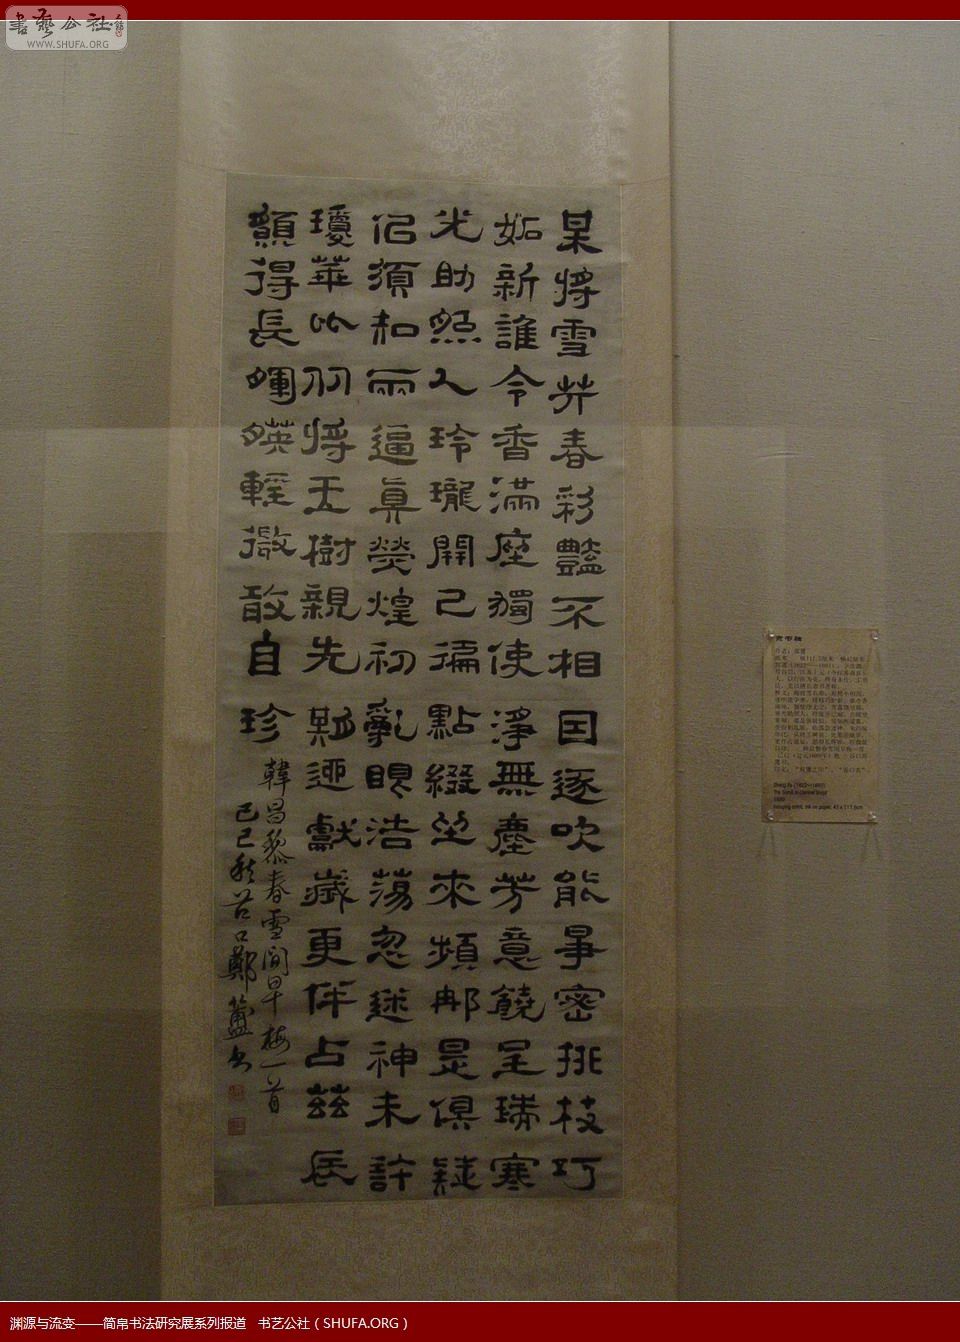 書藝公社
WWW.SHUFA.ORG
某將雪共春彩豔不相因逐吹能爭密排枝巧
妬新誰令香滿座獨使淨無塵芳意饒呈瑞寒
光助照人玲瓏開已徧點綴坐來頻那是俱疑
佀須知兩逼真熒煌初亂眼浩蕩忽迷神未許
瓊華比從將玉樹親先期迎獻歲更伴占茲辰
願得長暉暎輕微敢自珍
韓昌黎春雪間早梅一首
己巳秋谷口鄭簠書
渊源与流变——简帛书法研究展系列报道 书艺公社（SHUFA.ORG）